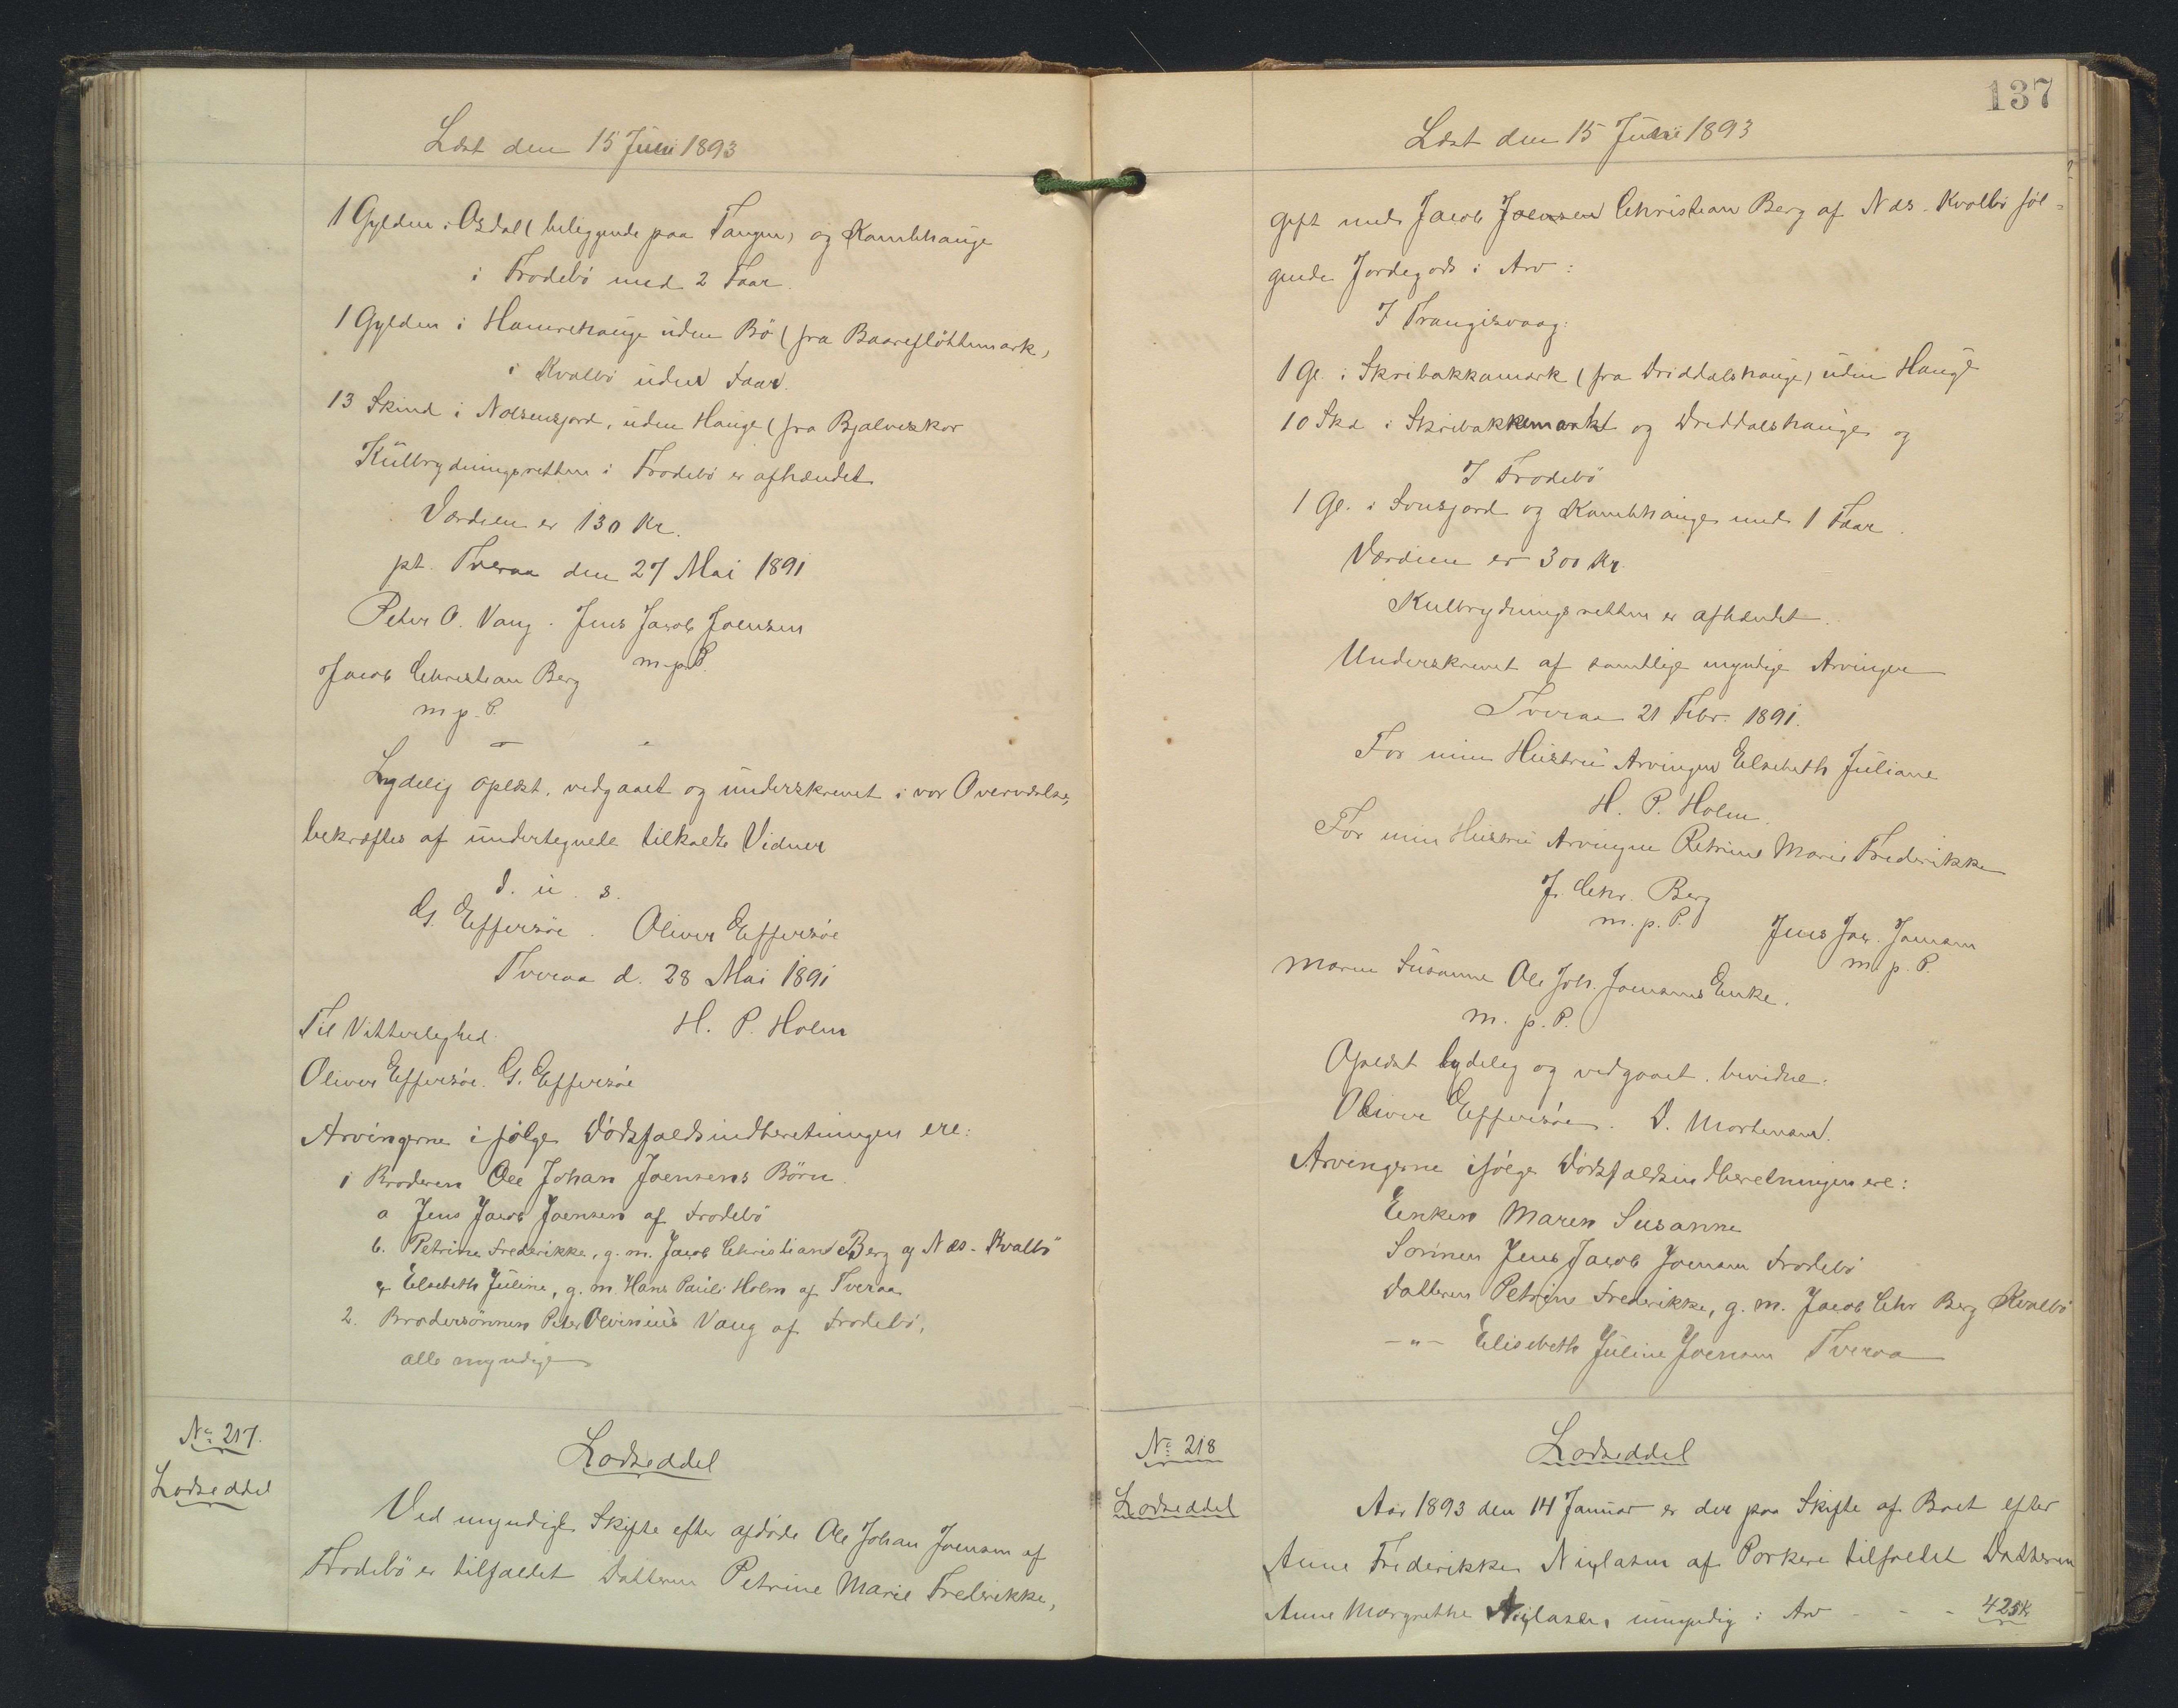 Læst den 15 Juni 1893
1 Gylden i Oxdal (beliggende paa Tangen) og Kambhauge
i Frodebö med 2 Faar.
1 Gylden i Hamrehauge uden Bö (fra Baareflöttumark,
i Kvalbö uden Faar.
13 Skind i Nolsensjord, uden Hauge (fra Bjalveskor
Kulbrydningsretten i Frodebö er afhændet
Værdien er 130 Kr.
pt. Tveraa den 27 Mai 1891
Peter O. Vang. Jens Jacob Joensen
m. p. P.
Jacob Christian Berg
m. p. P.
Lydelig oplæst, vedgaaet og underskrevet i vor Overværelse,
bekræftes af undertegnede tilkaldte Vidner
D. u. s.
G. Effersöe. Oliver Effersöe
Tveraa d. 28 Mai 1891
Til Vitterlighed. H. P. Holm
Oliver Effersöe. G. Effersöe
Arvingerne i fölge Dödsfaldsindberetningen ere:
1 Broderen Ole Johan Joensens Börn.
a Jens Jacob Joensen af Frodebö
b. Petrine Frederikke, g. m. Jacob Christian Berg af Næs-Kvalbö
c Elsebeth Juline, g. m. Hans Pauli Holm af Tveraa
2. Brodersönnen Peter Olvinius Vang af Frodebö,
alle myndige
No. 217.
Lodseddel
Lodseddel
Ved myndigt Skifte efter afdöde Ole Johan Joensen af
Frodebö er tilfaldet Datteren Petrine Marie Frederikke,
137
Læst den 15 Juni 1893
gift med Jacob Joensen Christian Berg af Næs-Kvalbö föl-
gende Jordegods i Arv:
I Trangisvaag:
1 Gl. i Skribakkamark (fra Driddalshauge) uden Hauge
10 Skd i Skribakkemark og Driddalshauge og
I Frodebö
1 Gl. i Sonsjord og Kambhauge med 1 Faar.
Værdien er 300 Kr.
Kulbrydningsretten er afhændet.
Underskrevet af samtlige myndige Arvinger
Tveraa 21 Febr. 1891.
For min Hustru Arvingen Elsebeth Juliane
H. P. Holm.
For min Hustru Arvingen Petrine Marie Frederikke
J. Chr. Berg
m. p. P. Jens Jac. Joensen
m. p. P.
Maren Susanne Ole Joh. Joensens Enke.
m. p. P.
Oplæst lydelig og vedgaaet, bevidne.
Oliver Effersöe. D. Mortensen.
Arvingerne ifölge Dödsfaldsindberetningen ere:
Enken Maren Susanne
Sönnen Jens Jacob Joensen Frodebö
Datteren Petrine Frederikke, g. m. Jacob Chr Berg Kvalbö
-"- Elisebeth Juline Joensen Tveraa
No. 218
Lodseddel
Lodseddel
Aar 1893 den 14 Januar er der paa Skifte af Boet efter
Anne Frederikke Niclasen af Porkere tilfaldet Datteren
Anne Margrethe Niclasen, umyndig i Arv - - - 425 Kr